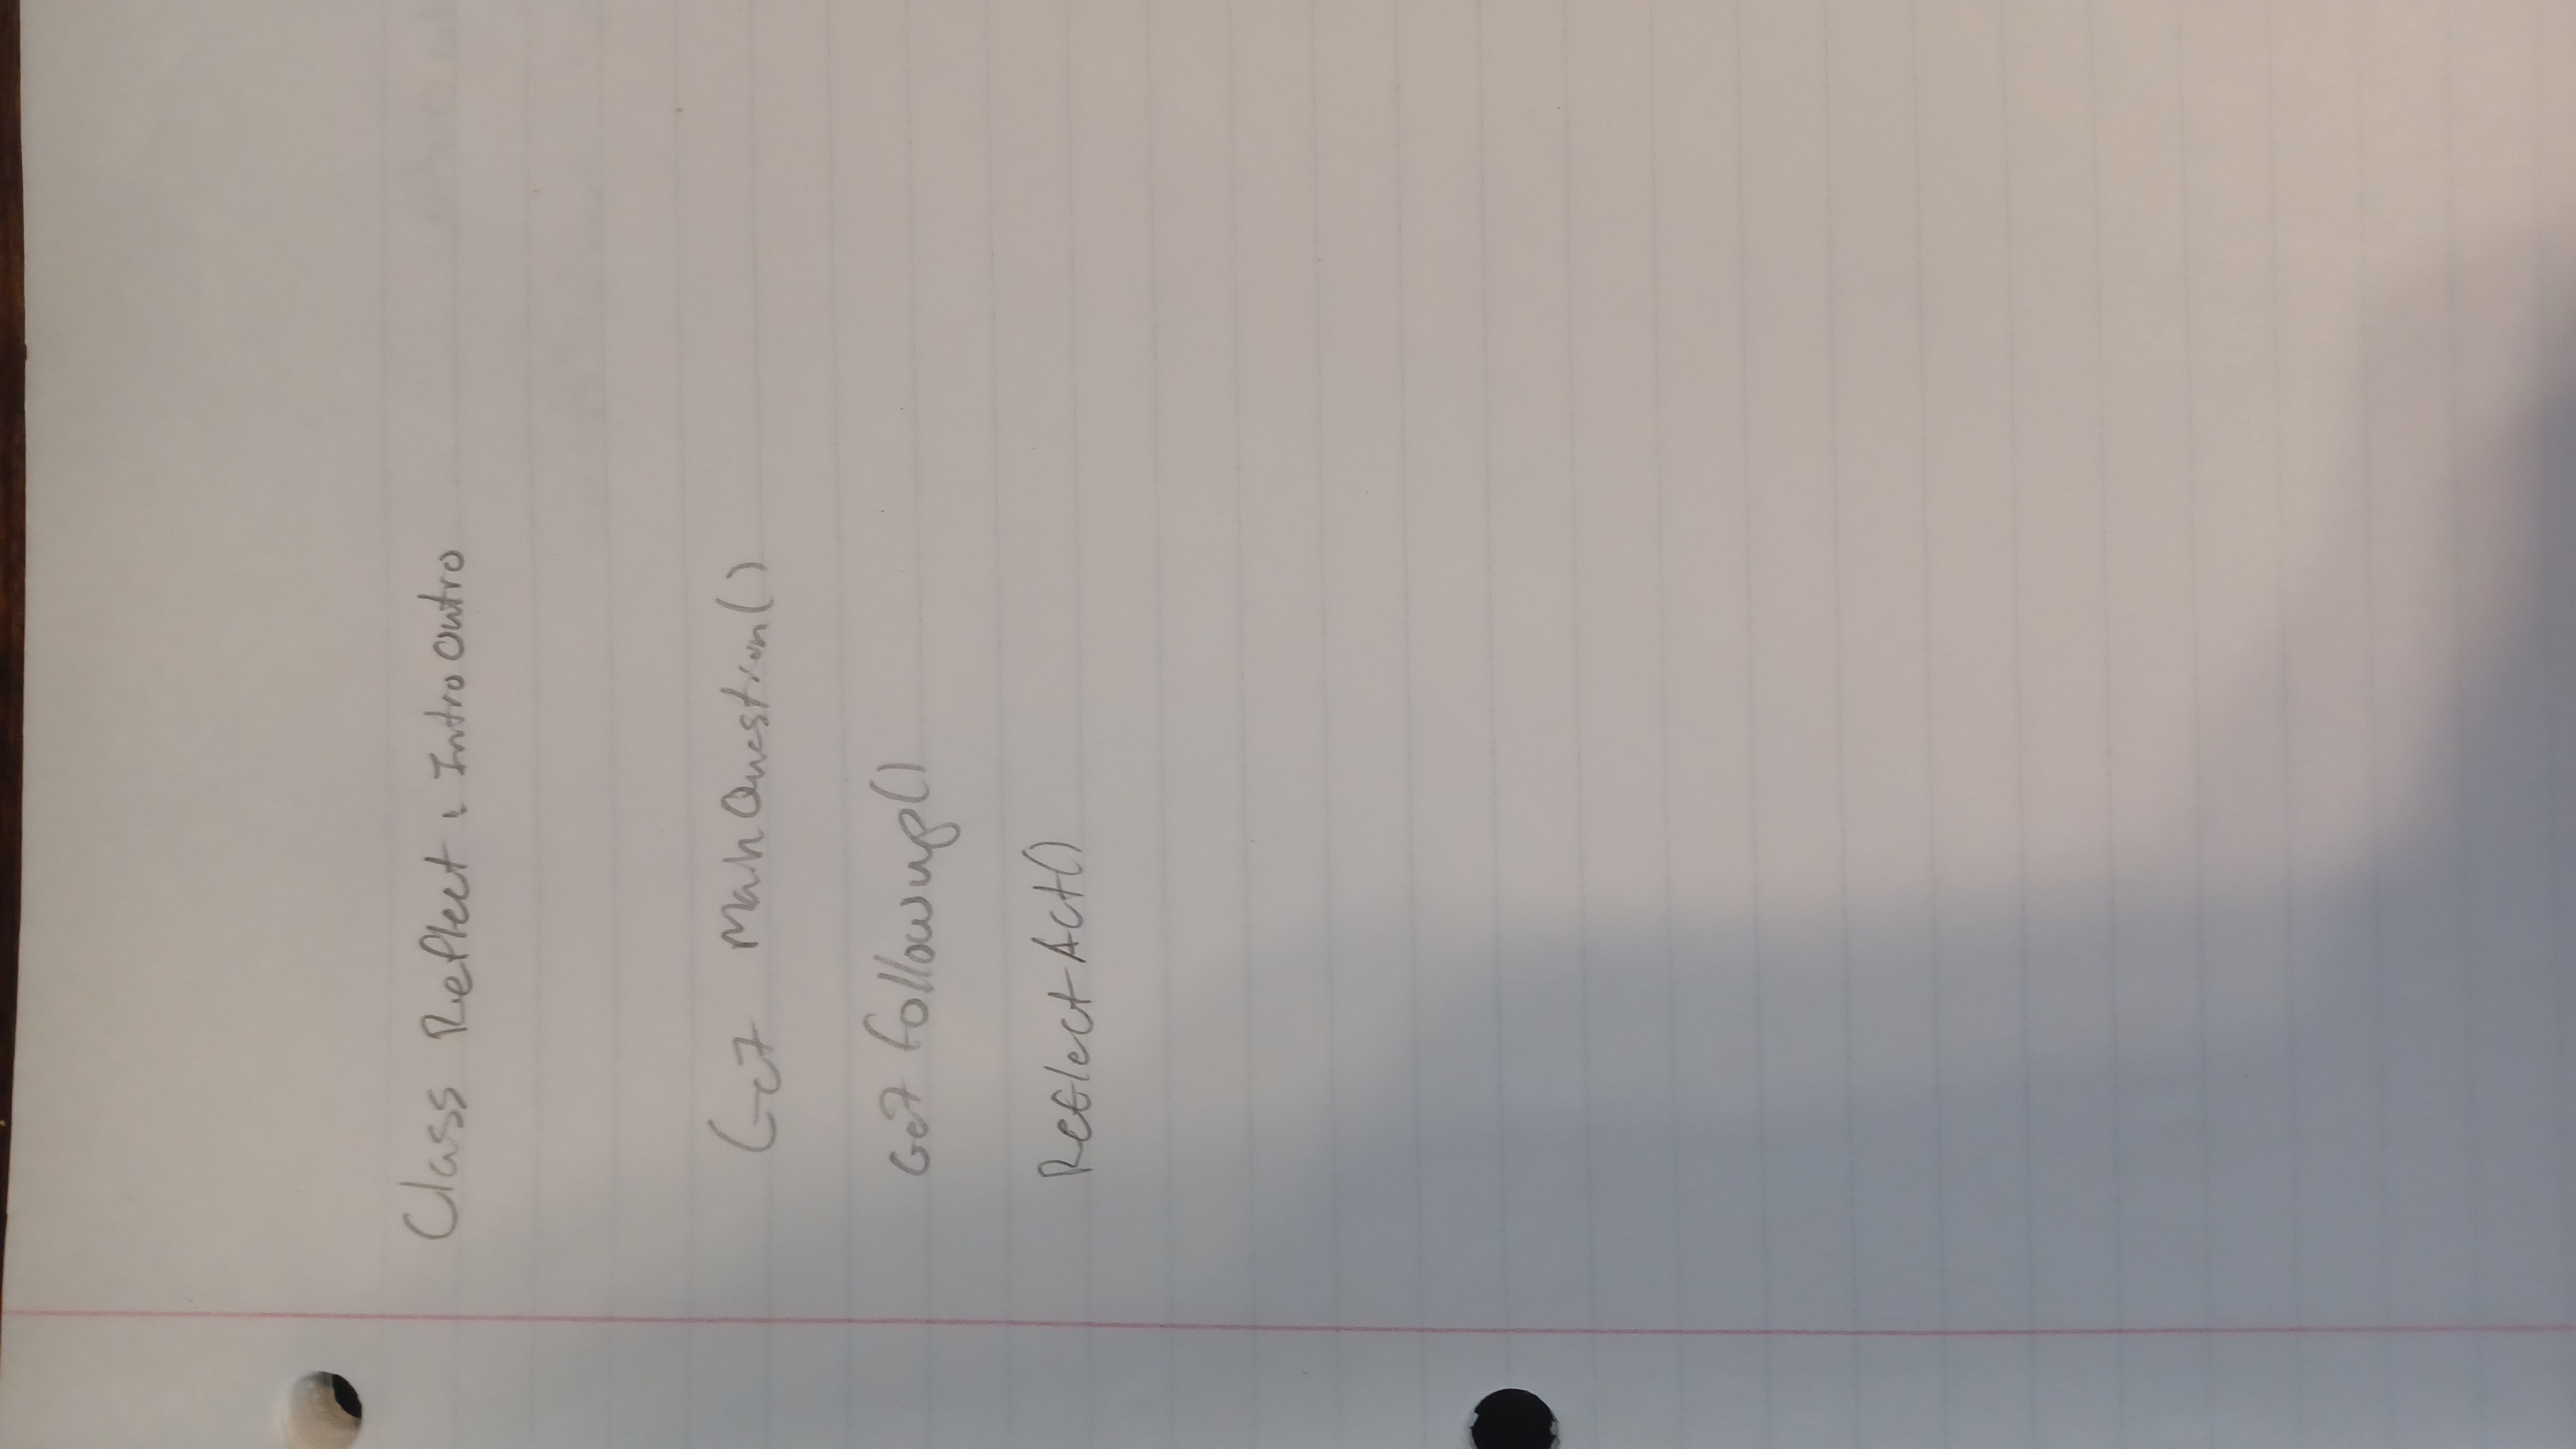 Class Reflect : Intro Outro
Get MainQuestion()
Get followup()
ReflectAct()